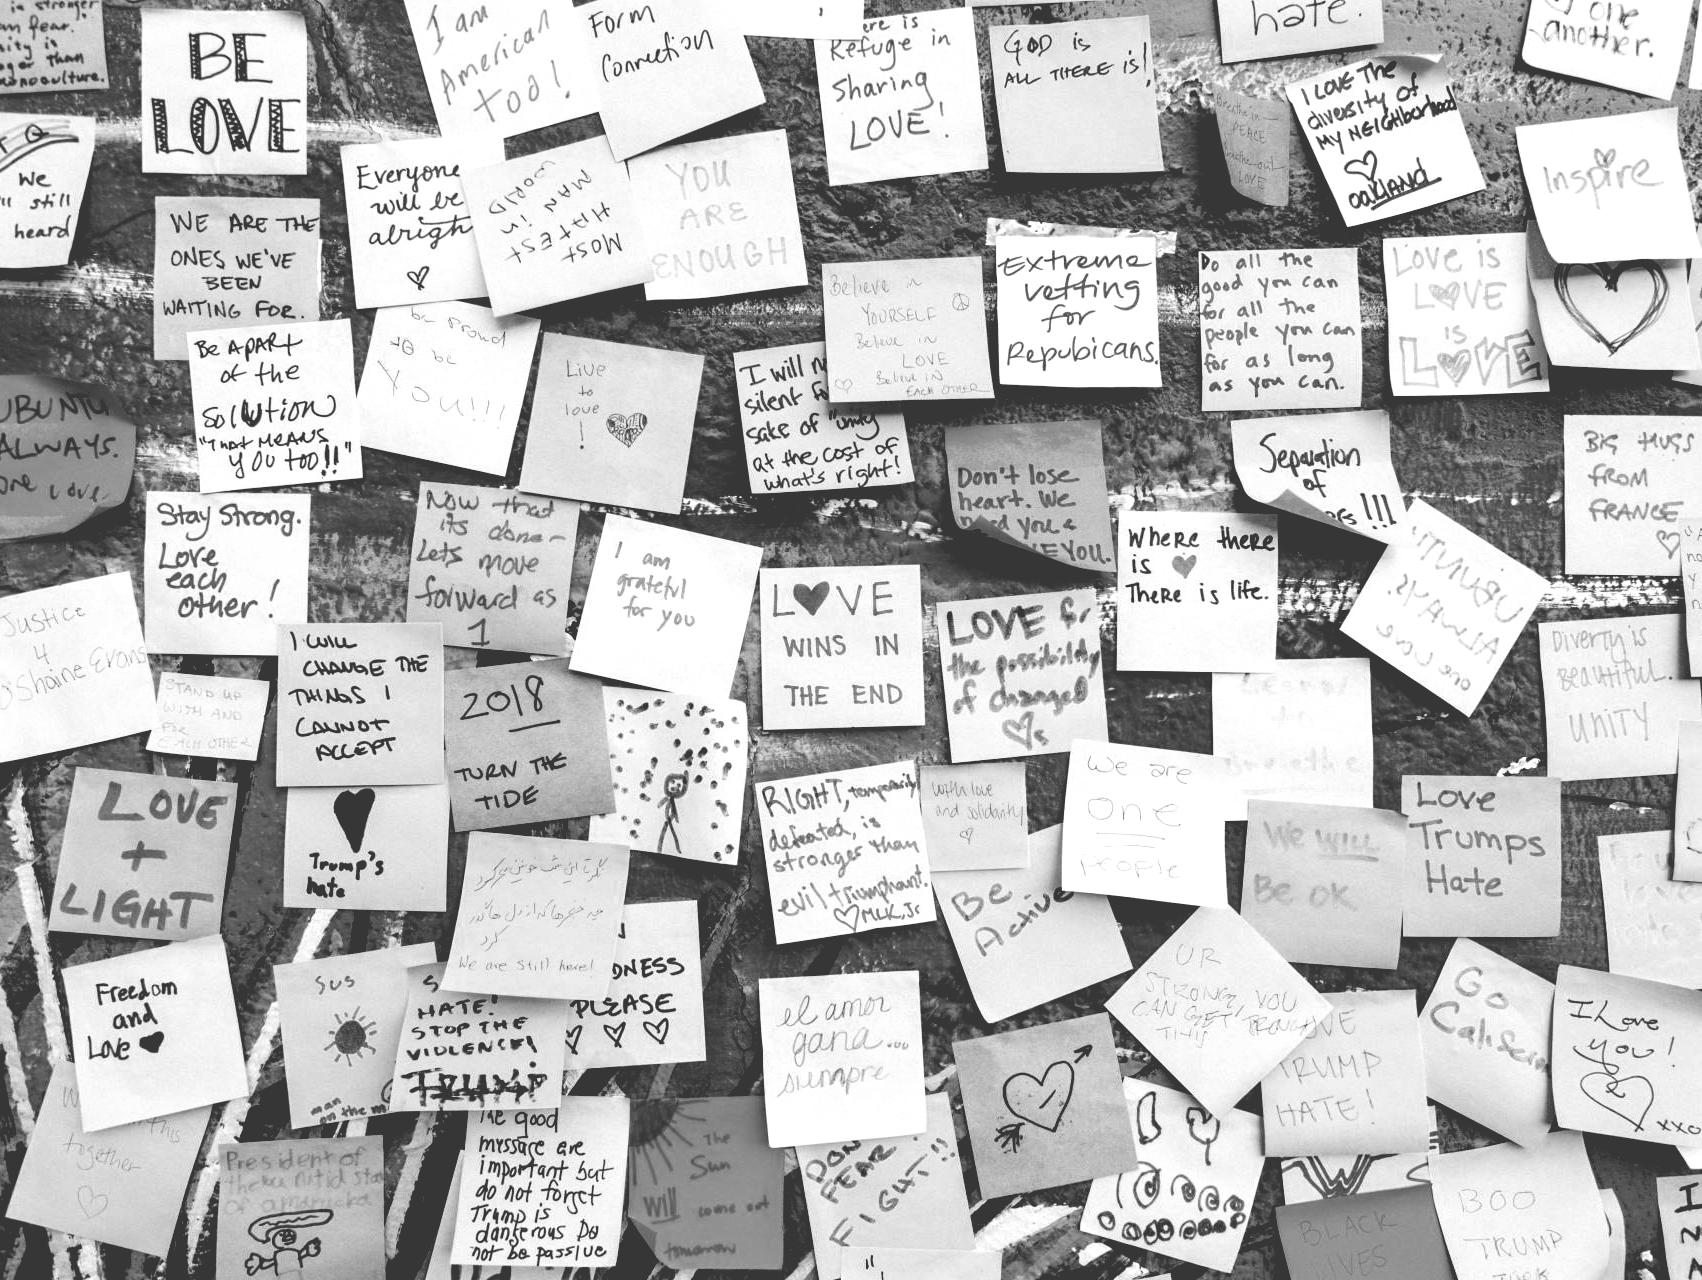 is stronger
fear.
than
monoculture.
BE
LOVE
I am
American
too!
Form
Connection
ere is
Refuge in
Sharing
LOVE!
GOD is
ALL THERE is!
hate.
one
another.
I LOVE THE
diversity of
MY NEIGHborhood
OAKLAND
Breathe in
PEACE
breathe out
LOVE
Inspire
We
still
heard
WE ARE THE
ONES WE'VE
BEEN
WAITING FOR.
Everyone
will be
alright
MOST
HATEST
MAN in
WORLD
YOU
ARE
ENOUGH
Believe in
YOURSELF
Believe in
LOVE
Believe IN
EACH OTHER
Extreme
vetting
for
Repubicans.
Do all the
good you can
for all the
people you can
for as long
as you can.
Love is
LOVE
is
LOVE
Be A PART
of the
SOLUTION
"THAT MEANS
YOU TOO!!"
be proud
to be
You!!!
Live
to
love
!
I will n
silent fo
sake of "unity
at the cost of
what's right!
UBUNTU
ALWAYS.
one love.
Don't lose
heart. We
need you &
YOU.
Separation
of
!!!
BIG HUGS
FROM
FRANCE
Stay Strong.
Love
each
other!
Now that
its done-
Lets move
forward as
1
I am
grateful
for you
LOVE
WINS IN
THE END
LOVE for
the possibility
of changed
Where there
is
There is life.
UBUNTU
ALWAYS.
one love
Justice
4
O'Shaine Evans
STAND UP
WITH AND
FOR
EACH OTHER
I WILL
CHANGE THE
THINGS I
CANNOT
ACCEPT
2018
TURN THE
TIDE
Diverty is
Beautiful.
UNITY
LOVE
+
LIGHT
Trump's
hate
RIGHT, temporarily
defeated, is
stronger than
evil triumphant.
MLK, Jr
with love
and solidarity
We are
one
people
We will
Be OK
Love
Trumps
Hate
We are still here!
Be
Active
DNESS
PLEASE
Freedom
and
Love
SUS
man
on the m
HATE!
STOP THE
VIOLENCE!
el amor
gana...
siempre
UR
STRONG, YOU
CAN GET THROUGH
THIS
VE
TRUMP
HATE!
Go
I Love
you!
xxo
this
together
President of
the unitid sta
of amaricka
The good
message are
important but
do not forget
Trump is
dangerous Do
not be passive
The
Sun
will come out
tomorrow
DON
FEAR
FIGHT!!
BLACK
LIVES
BOO
TRUMP